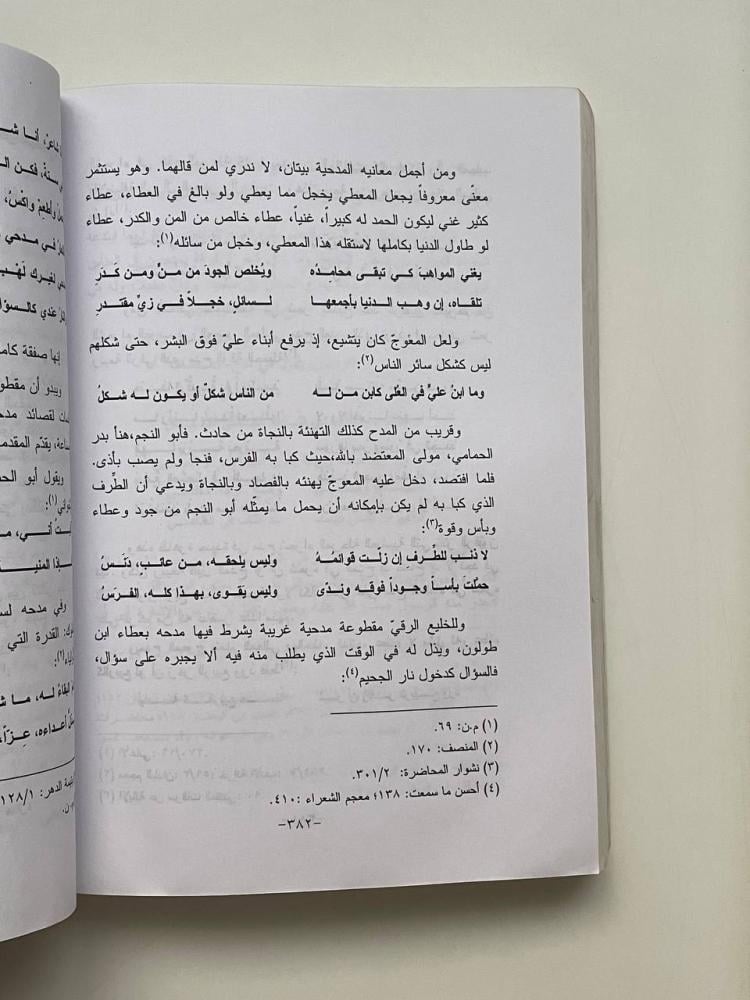 ومن أجمل معانيه المدحية بيتان، لا ندري لمن قالهما. وهو يستثمر
معنًى معروفاً يجعل المعطي يخجل مما يعطي ولو بالغ في العطاء، عطاء
كثير غني ليكون الحمد له كبيراً، غنياً، عطاء خالص من المن والكدر، عطاء
لو طاول الدنيا بكاملها لاستقله هذا المعطي، وخجل من سائله(١):
يغني المواهبَ كي تبقى محامِدُه ويُخلص الجودَ من منٍّ ومن كَدَرِ
تلقاه، إن وهب الدنيا بأجمعها لسائلٍ، خجلاً في زيِّ مقتدرِ
ولعل المعوّج كان يتشيع، إذ يرفع أبناء عليّ فوق البشر، حتى شكلهم
ليس كشكل سائر الناس(٢):
وما ابنُ عليٍّ في العُلى كابن من له من الناس شكلٌ أو يكون له شكلُ
وقريب من المدح كذلك التهنئة بالنجاة من حادث. فأبو النجم،هنأ بدر
الحمامي، مولى المعتضد بالله،حيث كبا به الفرس، فنجا ولم يصب بأذى.
فلما افتصد، دخل عليه المعوجّ يهنئه بالفصاد وبالنجاة ويدعي أن الطِّرف
الذي كبا به لم يكن بإمكانه أن يحمل ما يمثّله أبو النجم من جود وعطاء
وبأس وقوة(٣):
لا ذنبَ للطِّرفِ إن زلّت قوائمُه وليس يلحقه، من عائبٍ، دنَسُ
حمّلتَ بأساً وجوداً فوقه وندًى وليس يَقوى، بهذا كله، الفرَسُ
وللخليع الرقيّ مقطوعة مدحية غريبة يشرط فيها مدحه بعطاء ابن
طولون، ويذل له في الوقت الذي يطلب منه فيه ألا يجبره على سؤال،
فالسؤال كدخول نار الجحيم(٤):
(١) م.ن: ٦٩.
(٢) المنصف: ١٧٠.
(٣) نشوار المحاضرة: ٣٠١/٢.
(٤) أحسن ما سمعت: ١٣٨؛ معجم الشعراء :٤١٠.
-٣٨٢-